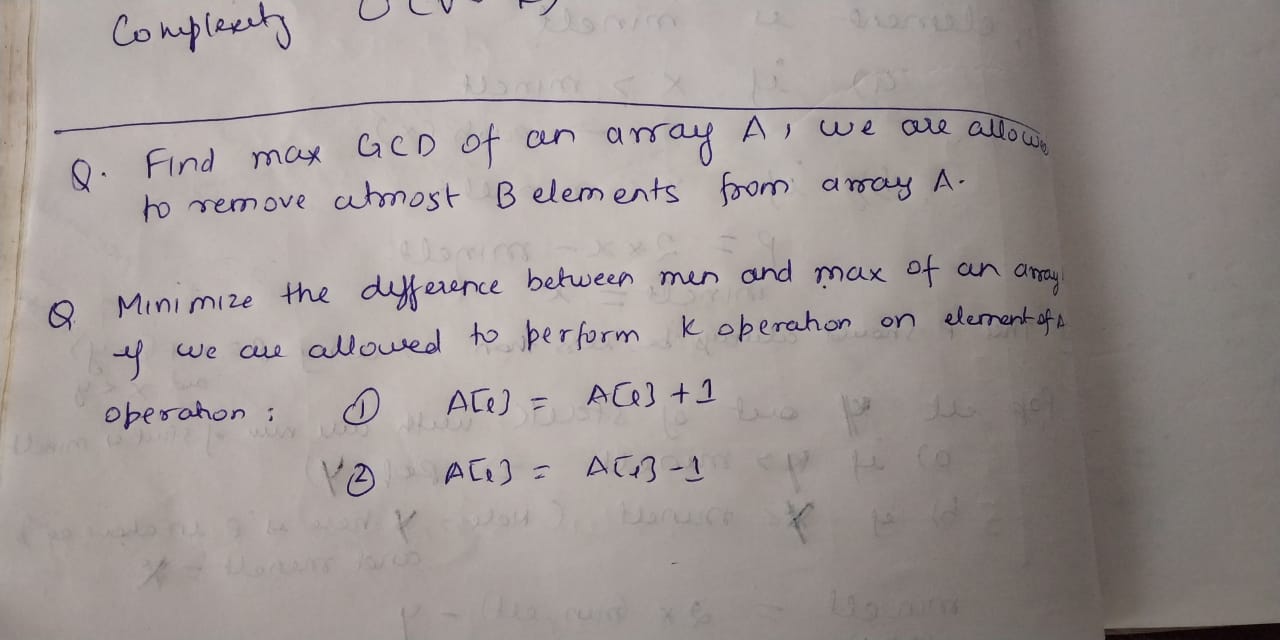 Complexity
Q. Find max GCD of an array A, we are allowe
to remove atmost B elements from array A.
Q Minimize the difference between min and max of an array
if we are allowed to perform K operation on element of A
operation : ① A[i] = A[i] + 1
② A[i] = A[i] - 1